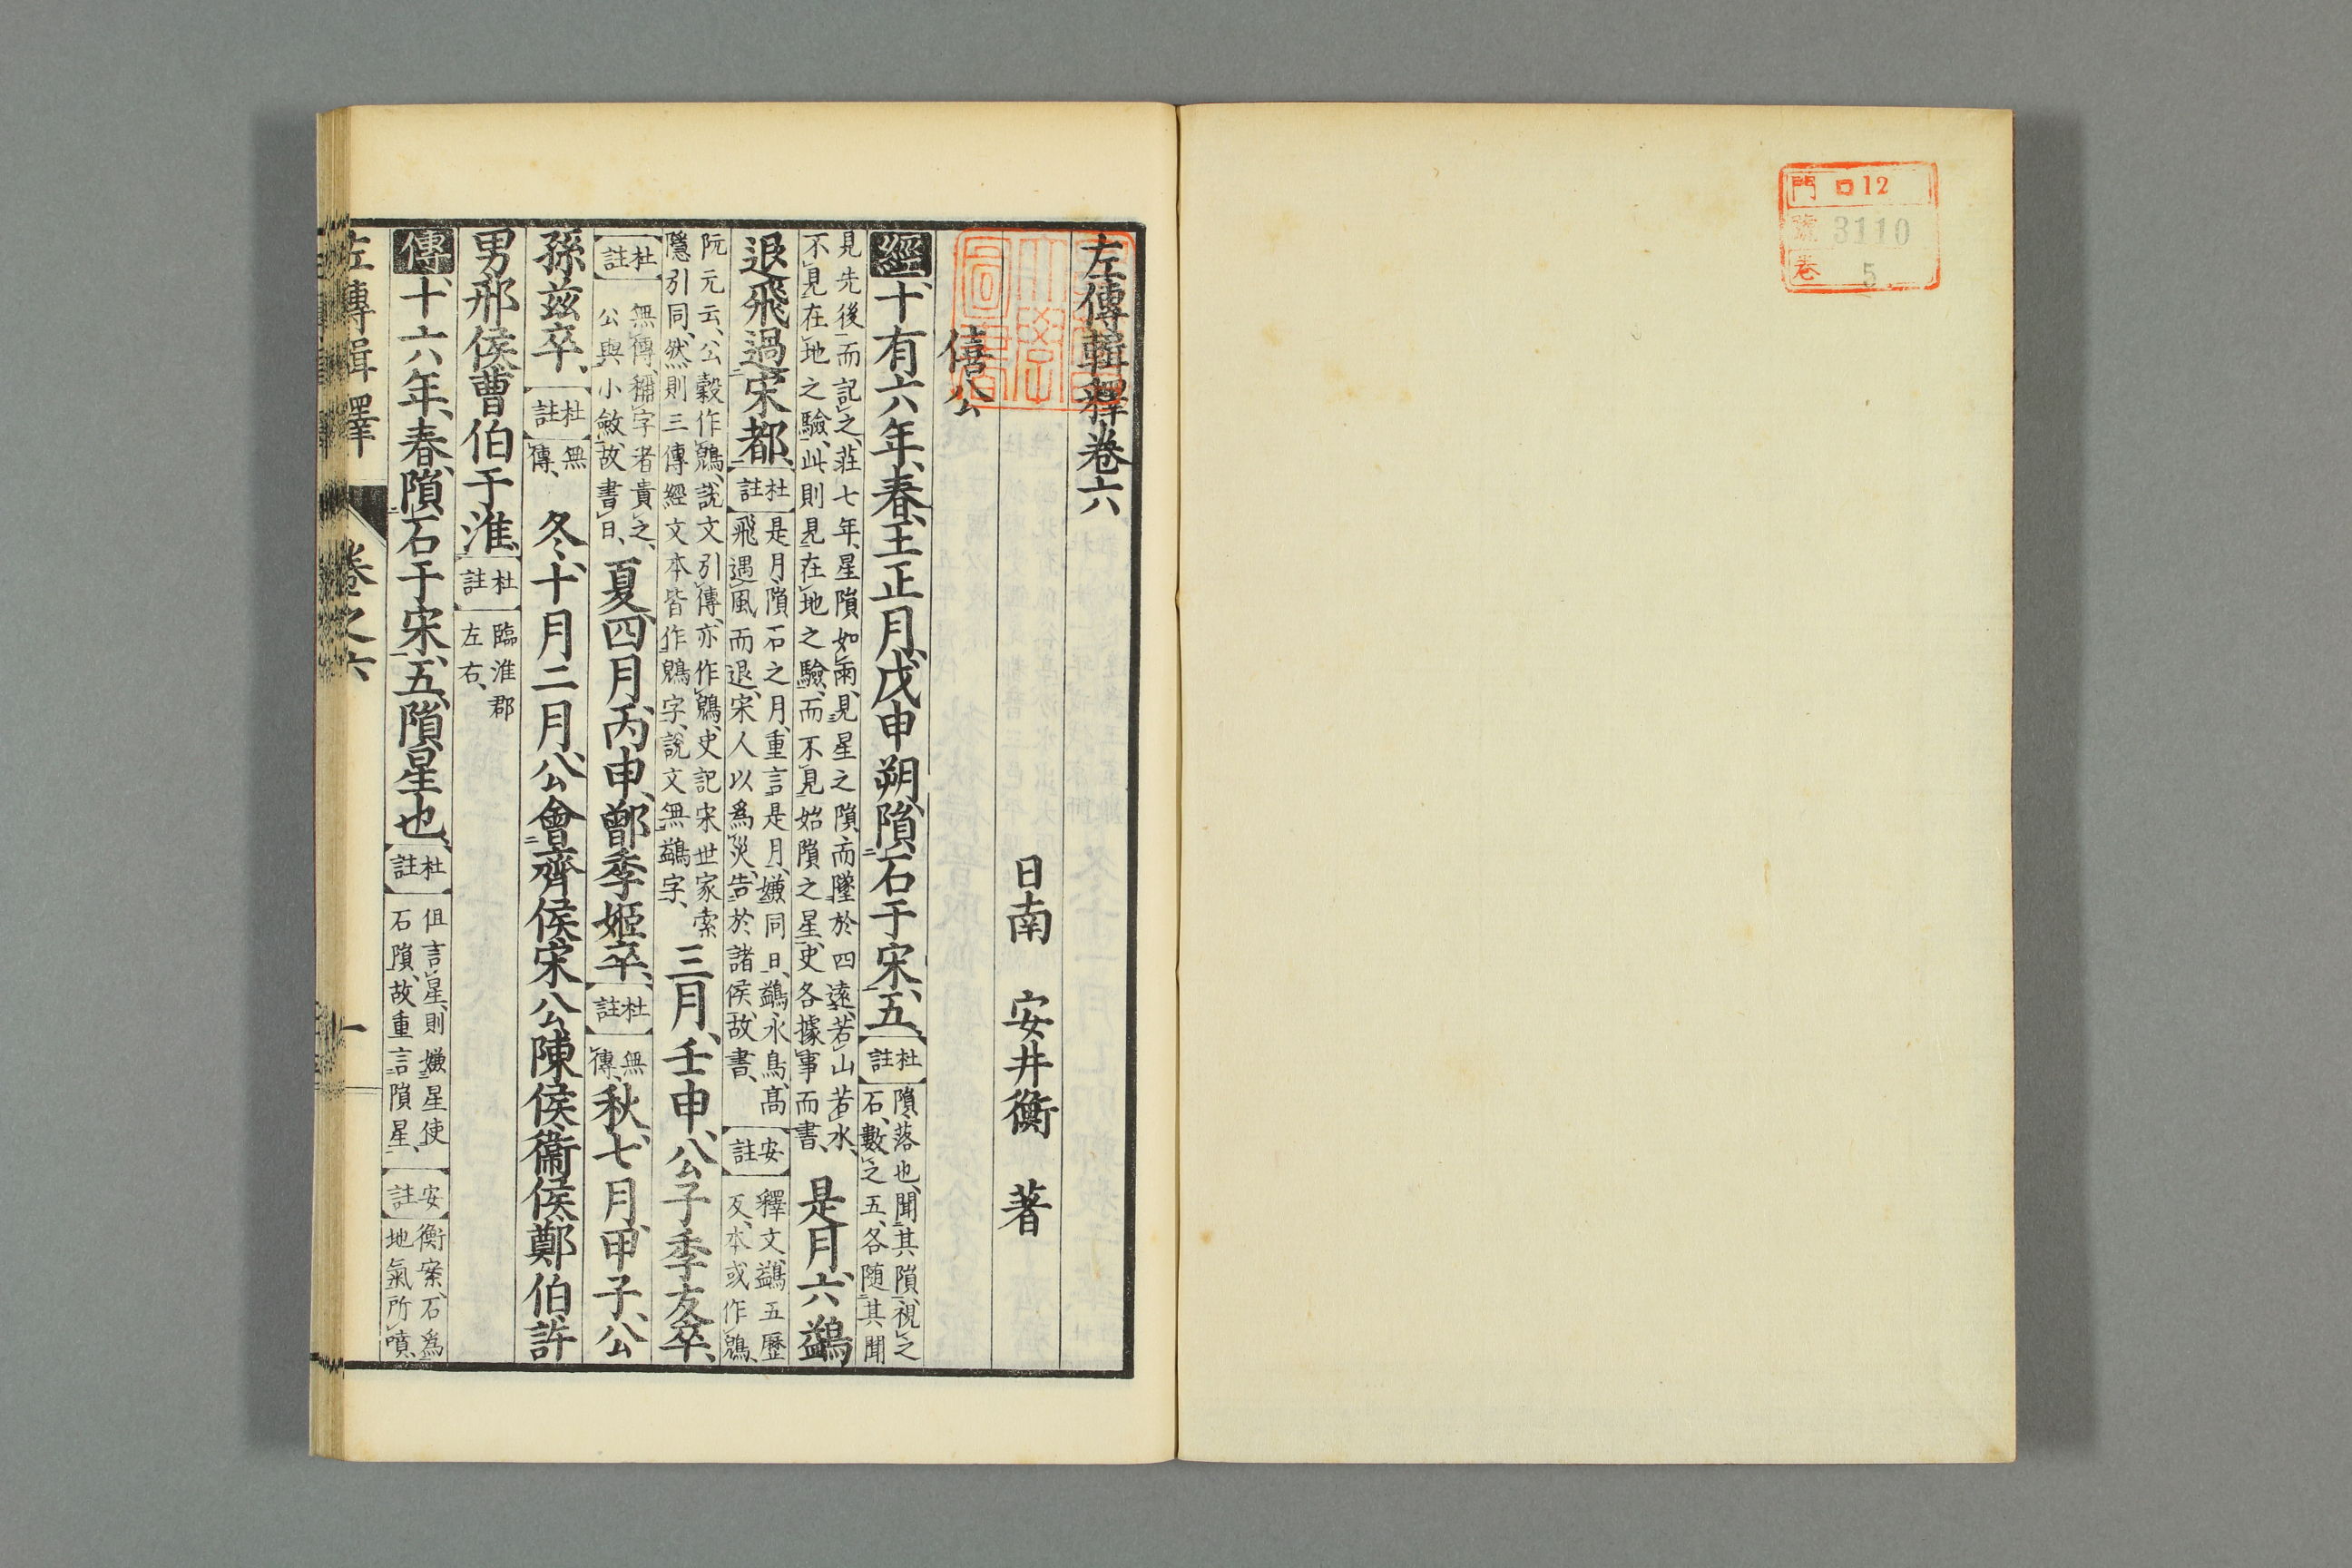 門 口12
號 3110
卷 5
左傳輯釋卷六
日南 安井衡 著
僖公
經十有六年、春、王正月、戊申朔、隕石于宋五、杜註隕落也、聞其隕、視之石、數之五、各随其聞
見先後而記之、莊七年、星隕如雨、見星之隕而墜於四遠、若山若水、不見在地之驗、此則見在地之驗、而不見始隕之星、史各據事而書、是月、六鷁
退飛過宋都、杜註是月隕石之月、重言是月、嫌同日、鷁水鳥、高飛遇風而退、宋人以爲災、告於諸侯、故書、安註釋文、鷁五歷反、本或作鶂、
阮元云、公穀作鶂、說文引傳、亦作鶂、史記宋世家索隱引同、然則三傳經文本皆作鶂字、說文無鷁字、三月、壬申、公子季友卒、
杜註無傳、稱字者貴之、公與小斂、故書日、夏四月、丙申、鄫季姬卒、杜註無傳、秋七月、甲子、公
孫茲卒、杜註無傳、冬、十月二月、公會齊侯宋公陳侯衞侯鄭伯許
男邢侯曹伯于淮、杜註臨淮郡左右、
傳十六年、春、隕石于宋五、隕星也、杜註但言星、則嫌星使石隕、故重言隕星、安註衡案、石爲地氣所噴、
左傳輯釋 卷之六 一